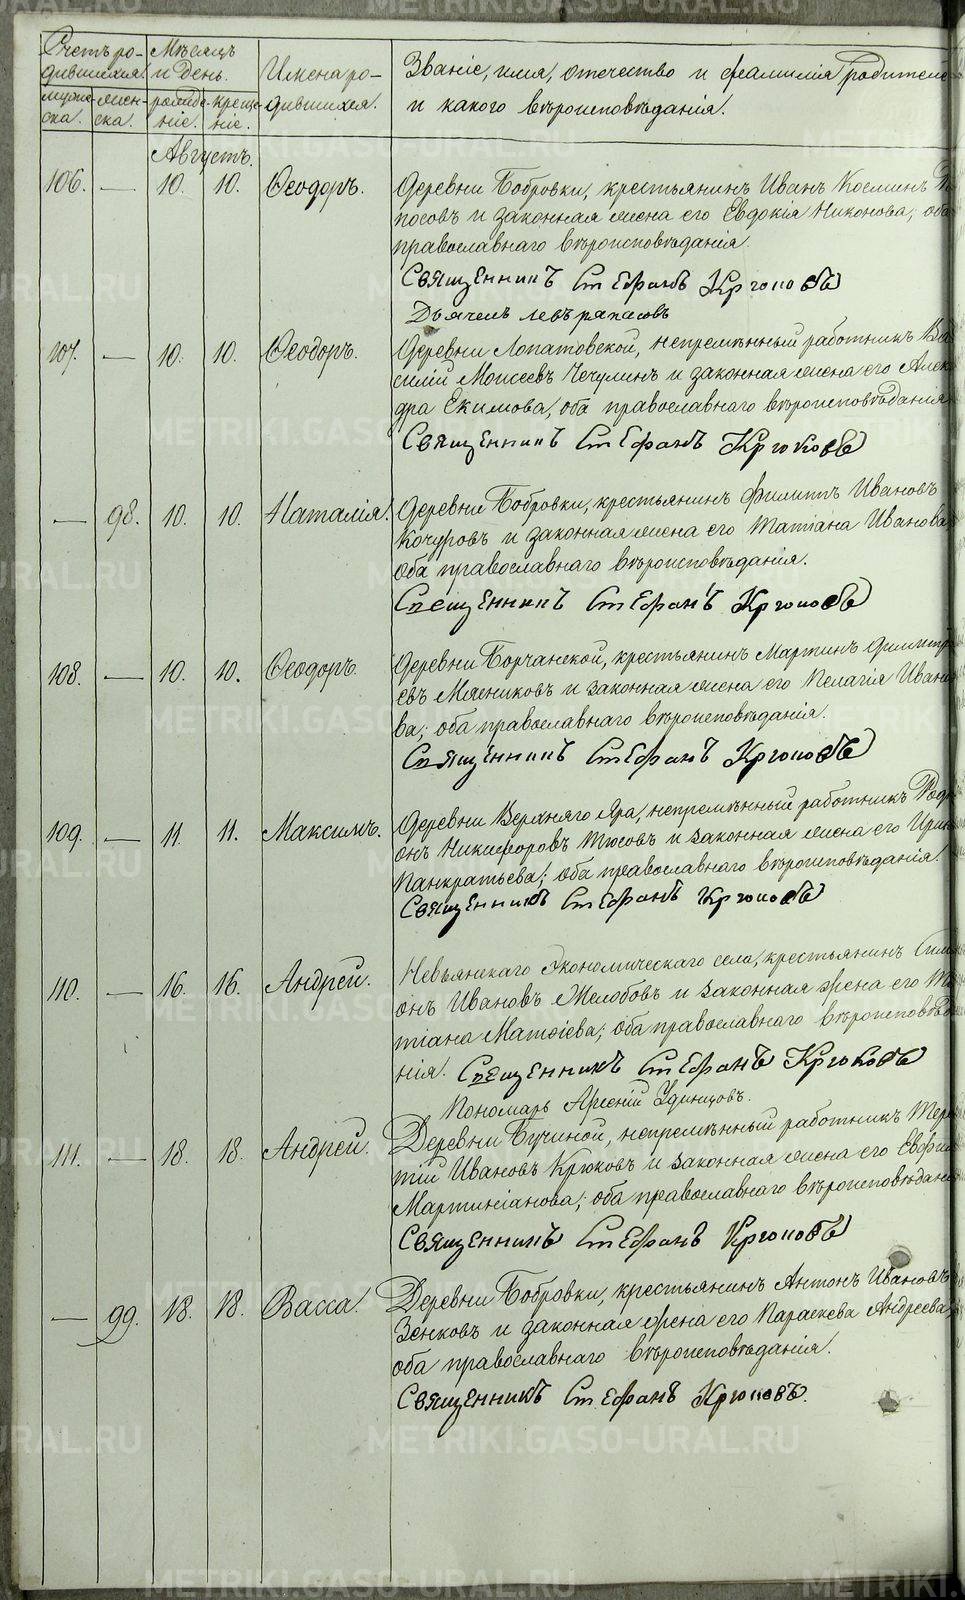 Счетъ ро-
дившихся.
Мѣсяцъ
и день.
Имена ро-
дившихся.
Званіе, имя, отечество и фамилія родителе
и какого вѣроисповѣданія.
муже-
ска.
жен-
ска.
рожде-
ніе.
креще-
ніе.
Августъ.
106. — 10. 10. Ѳеодоръ. Деревни Бобровки, крестьянинъ Иванъ Косминъ
посовъ и законная жена его Евдокія Никонова, оба
православнаго вѣроисповѣданія.
Священникъ Стефанъ Крюковъ
Дьячекъ Левъ
107. — 10. 10. Ѳеодоръ. Деревни Лопатовской, непремѣнный работникъ Ва
силій Моисеевъ Чечулинъ и законная жена его Алек
дра Екимова, оба православнаго вѣроисповѣданія
Священникъ Стефанъ Крюковъ
— 98. 10. 10. Наталія. Деревни Бобровки, крестьянинъ Филиппъ Ивановъ
Кочуровъ и законная жена его Татіана Иванова
оба православнаго вѣроисповѣданія.
Священникъ Стефанъ Крюковъ
108. — 10. 10. Ѳеодоръ. Деревни Борчанской, крестьянинъ Мартинъ Димитрі
евъ Мясниковъ и законная жена его Пелагія Ивано
ва; оба православнаго вѣроисповѣданія.
Священникъ Стефанъ Крюковъ
109. — 11. 11. Максимъ. Деревни Верхняго Яра, непремѣнный работникъ Роді
онъ Никифоровъ Тюсовъ и законная жена его Ирин
Панкратьева; оба православнаго вѣроисповѣданія.
Священникъ Стефанъ Крюковъ
110. — 16. 16. Андрей. Невьянскаго Экономическаго села, крестьянинъ Сим
онъ Ивановъ Желобовъ и законная жена его Та
тіана Матѳіева; оба православнаго вѣроисповѣда
нія. Священникъ Стефанъ Крюковъ
Пономарь Арсеній Удинцовъ.
111. — 18. 18. Андрей. Деревни Бучиной, непремѣнный работникъ Тере
тій Ивановъ Крюковъ и законная жена его Евфи
Мартиніанова; оба православнаго вѣроисповѣдан
Священникъ Стефанъ Крюковъ
— 99. 18. 18. Васса. Деревни Бобровки, крестьянинъ Антонъ Ивановъ
Зенковъ и законная жена его Параскева Андреева,
оба православнаго вѣроисповѣданія.
Священникъ Стефанъ Крюковъ.